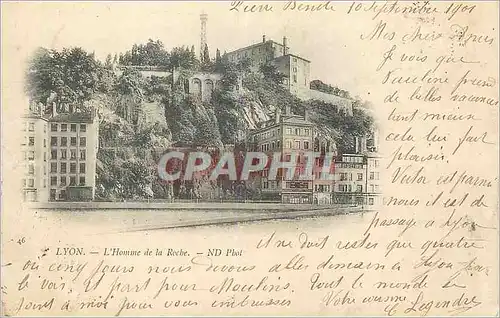 Pierre Bénite 10 Septembre 1901
Mes chers Amis
Je vois que
Pauline prend
de belles vacances
tant mieux
cela lui fait
plaisir.
Victor est parmi
nous il est de
passage à Lyon
il ne doit rester que quatre
ou cinq jours nous devons aller demain à Lyon
il part pour Moulins. Tout le monde se
joint à moi pour vous embrasser
Votre cousine
C Legendre
CPHARPA.COM
46
LYON. — L'Homme de la Roche. — ND Phot